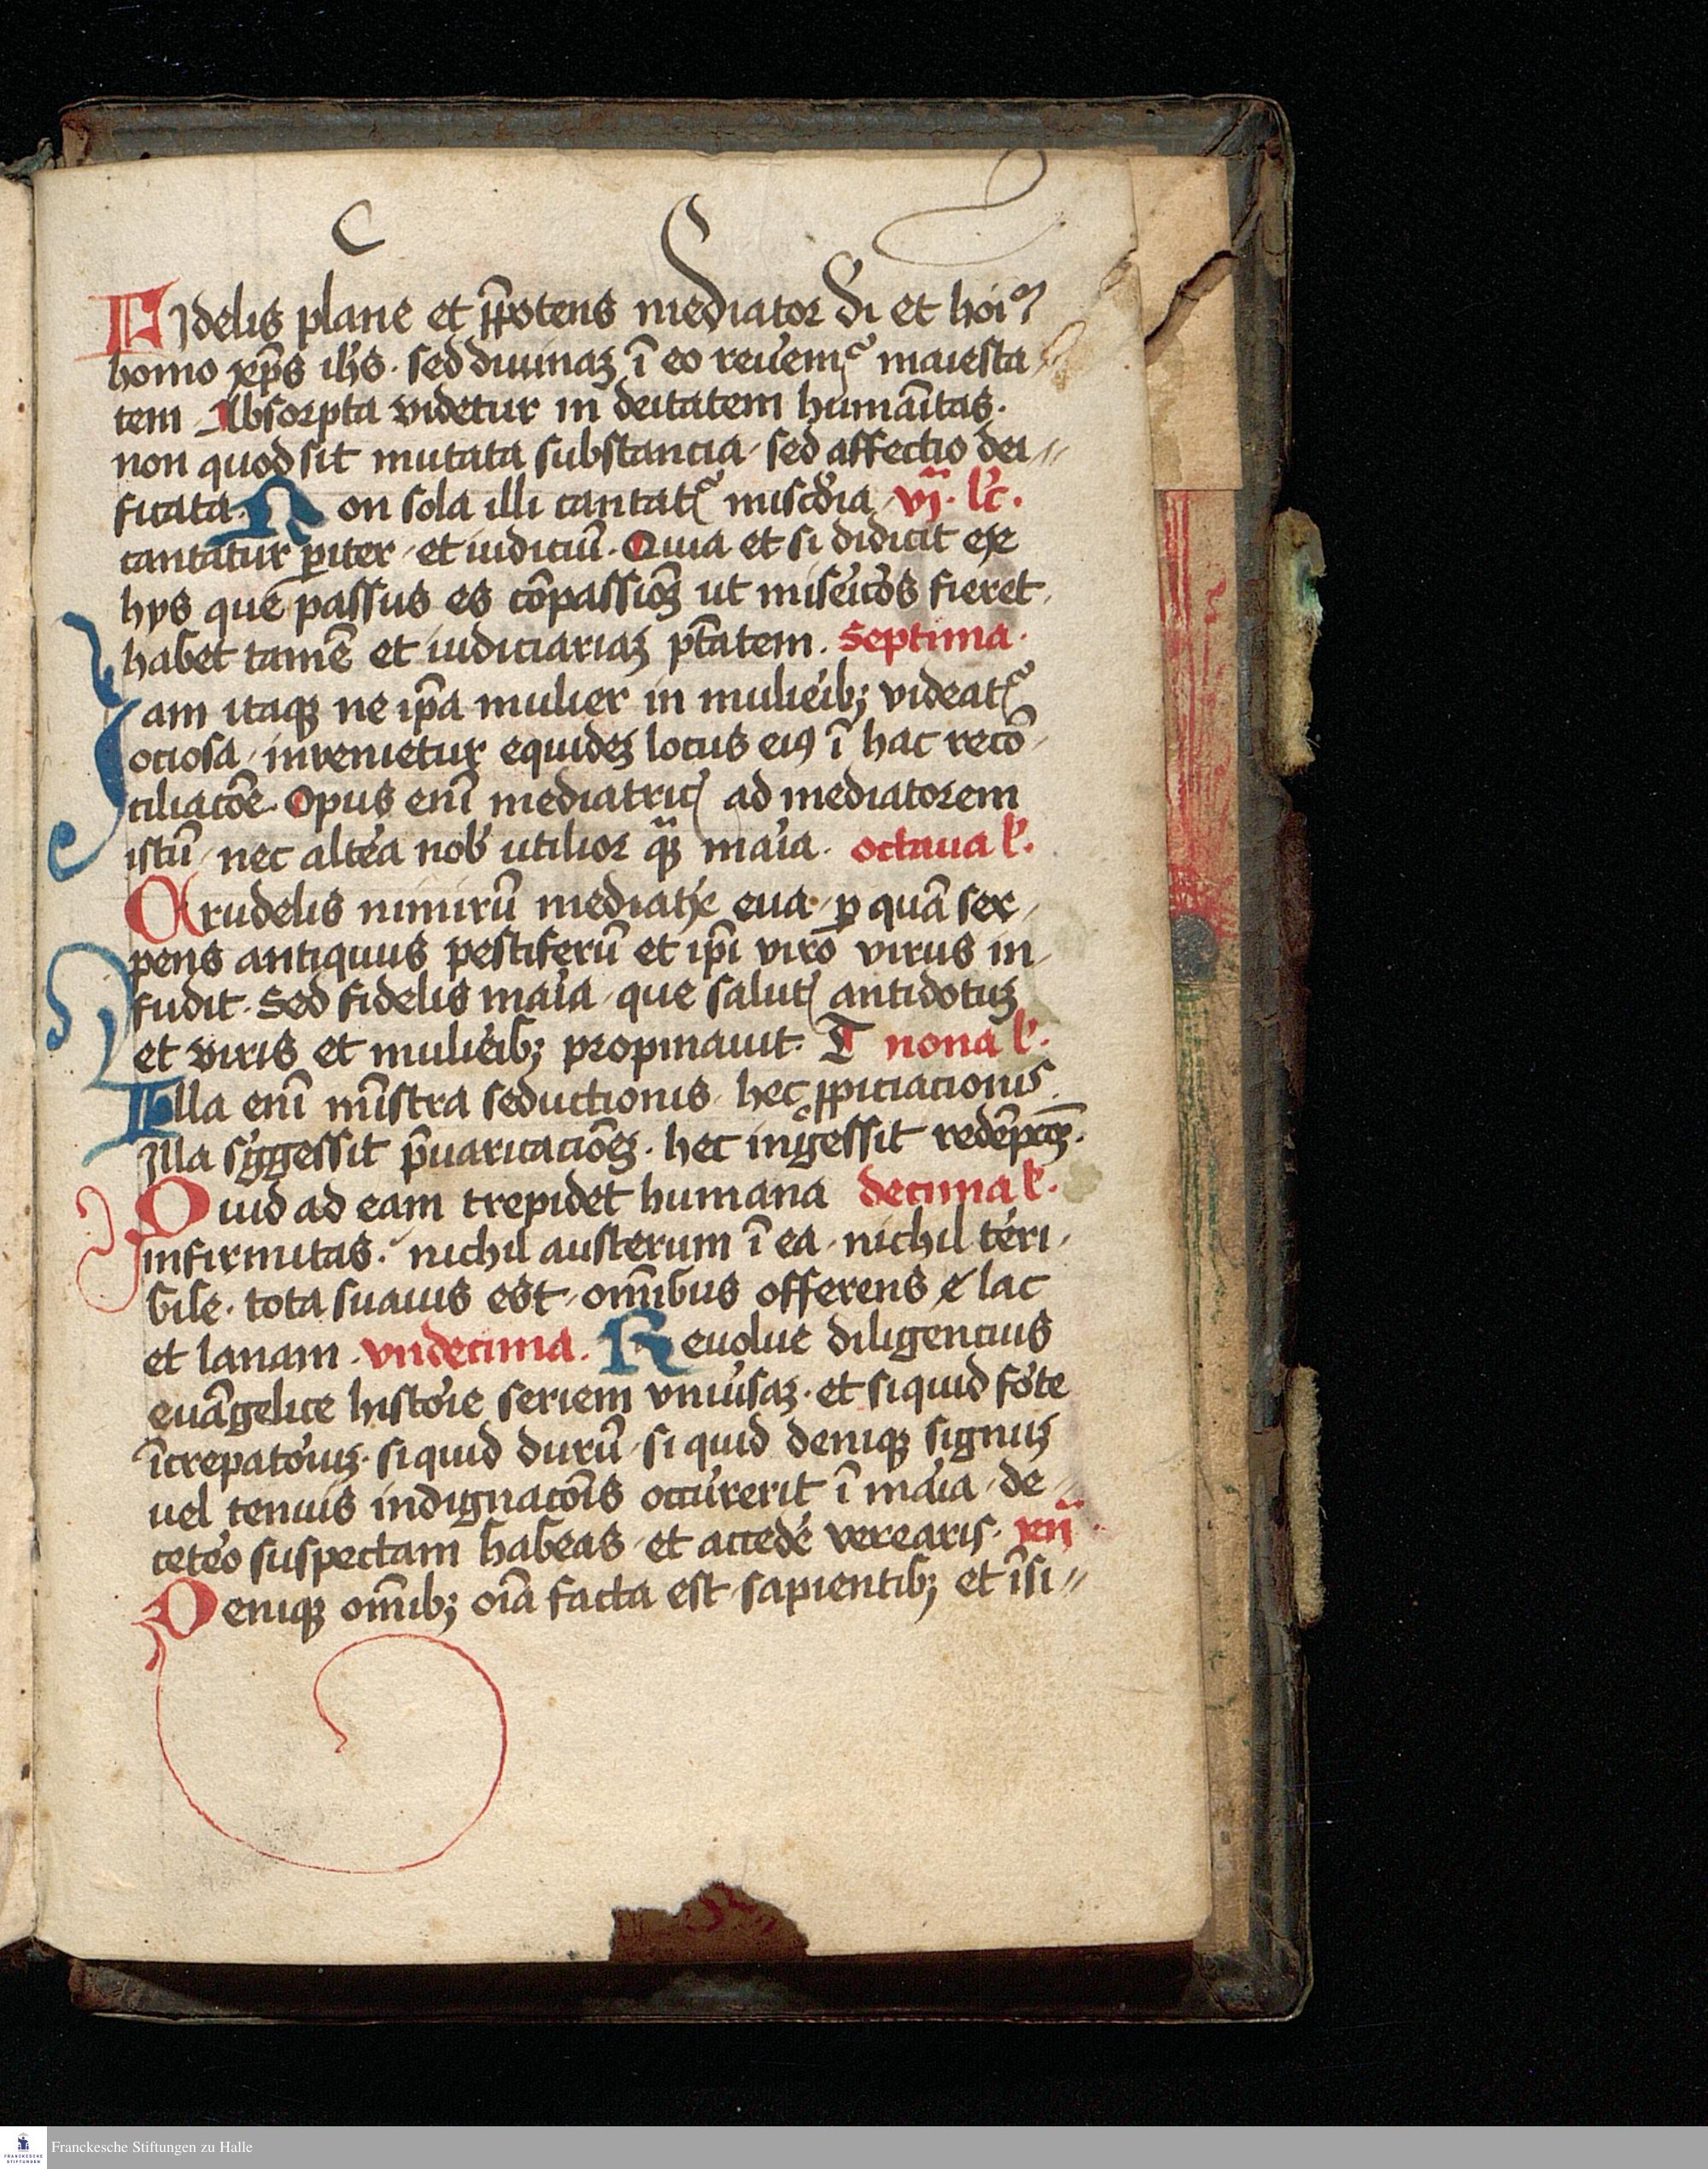 Fidelis plane et p̄potens mediator di et hoīm
homo xp̄s ihs. sed diuinaꝫ ī eo reuem² maiesta
tem Absorpta videtur in deitatem humāitas.
non quod sit mutata substancia sed affectio dei //
ficata. Non sola illi cantat² miscd̓ia vi̓. lc̓.
cantatur ꝑiter et iudiciū. Quia et si didicit exe
hys que passus es cōpassiōꝫ ut miseic̓os fieret
habet tamē et iudiciariaꝫ ptātem. Septima.
Jam itaqꝫ ne ip̄a mulier in mulieibꝫ videat²
ociosa inuenietur equideꝫ locus eiꝰ ī hac recō
ciliacōe. Opus enī mediatricꝭ ad mediatorem
istū nec alte̓a nob̓ utilior qᵃꝫ maia. octaua l̓.
Crudelis nimirū mediatⁱx eua ꝑ quā ser
pens antiquus pestiferū et ip̄i viro virus in
fudit. Sed fidelis maia que salutꝭ antidotuꝫ
et viris et mulieibꝫ propinauit. T nona l̓.
Illa enī mīstra seductionis hec ꝓpiciacionis.
Illa sᵘggessit p̄uaricaciōeꝫ. hec ingessit redēpcōꝫ.
Quid ad eam trepidet humana decima l̓.
infirmitas. nichil austerum ī ea nichil te̓ri
bile. tota suauis est om̄ibus offerens & lac
et lanam. vndecima. Reuolue diligencius
euāgelice histoi̓e seriem vniu̓saꝫ. et si quid fo̓te
īcrepatoi̓uꝫ. si quid durū si quid deniqꝫ signuꝫ
uel tenuis indignacōis occu̓rerit ī maia de
cete̓o suspectam habeas et accede̓ verearis. xii
Deniqꝫ om̄ibꝫ oīa facta est sapientibꝫ et īsi //
Franckesche Stiftungen zu Halle